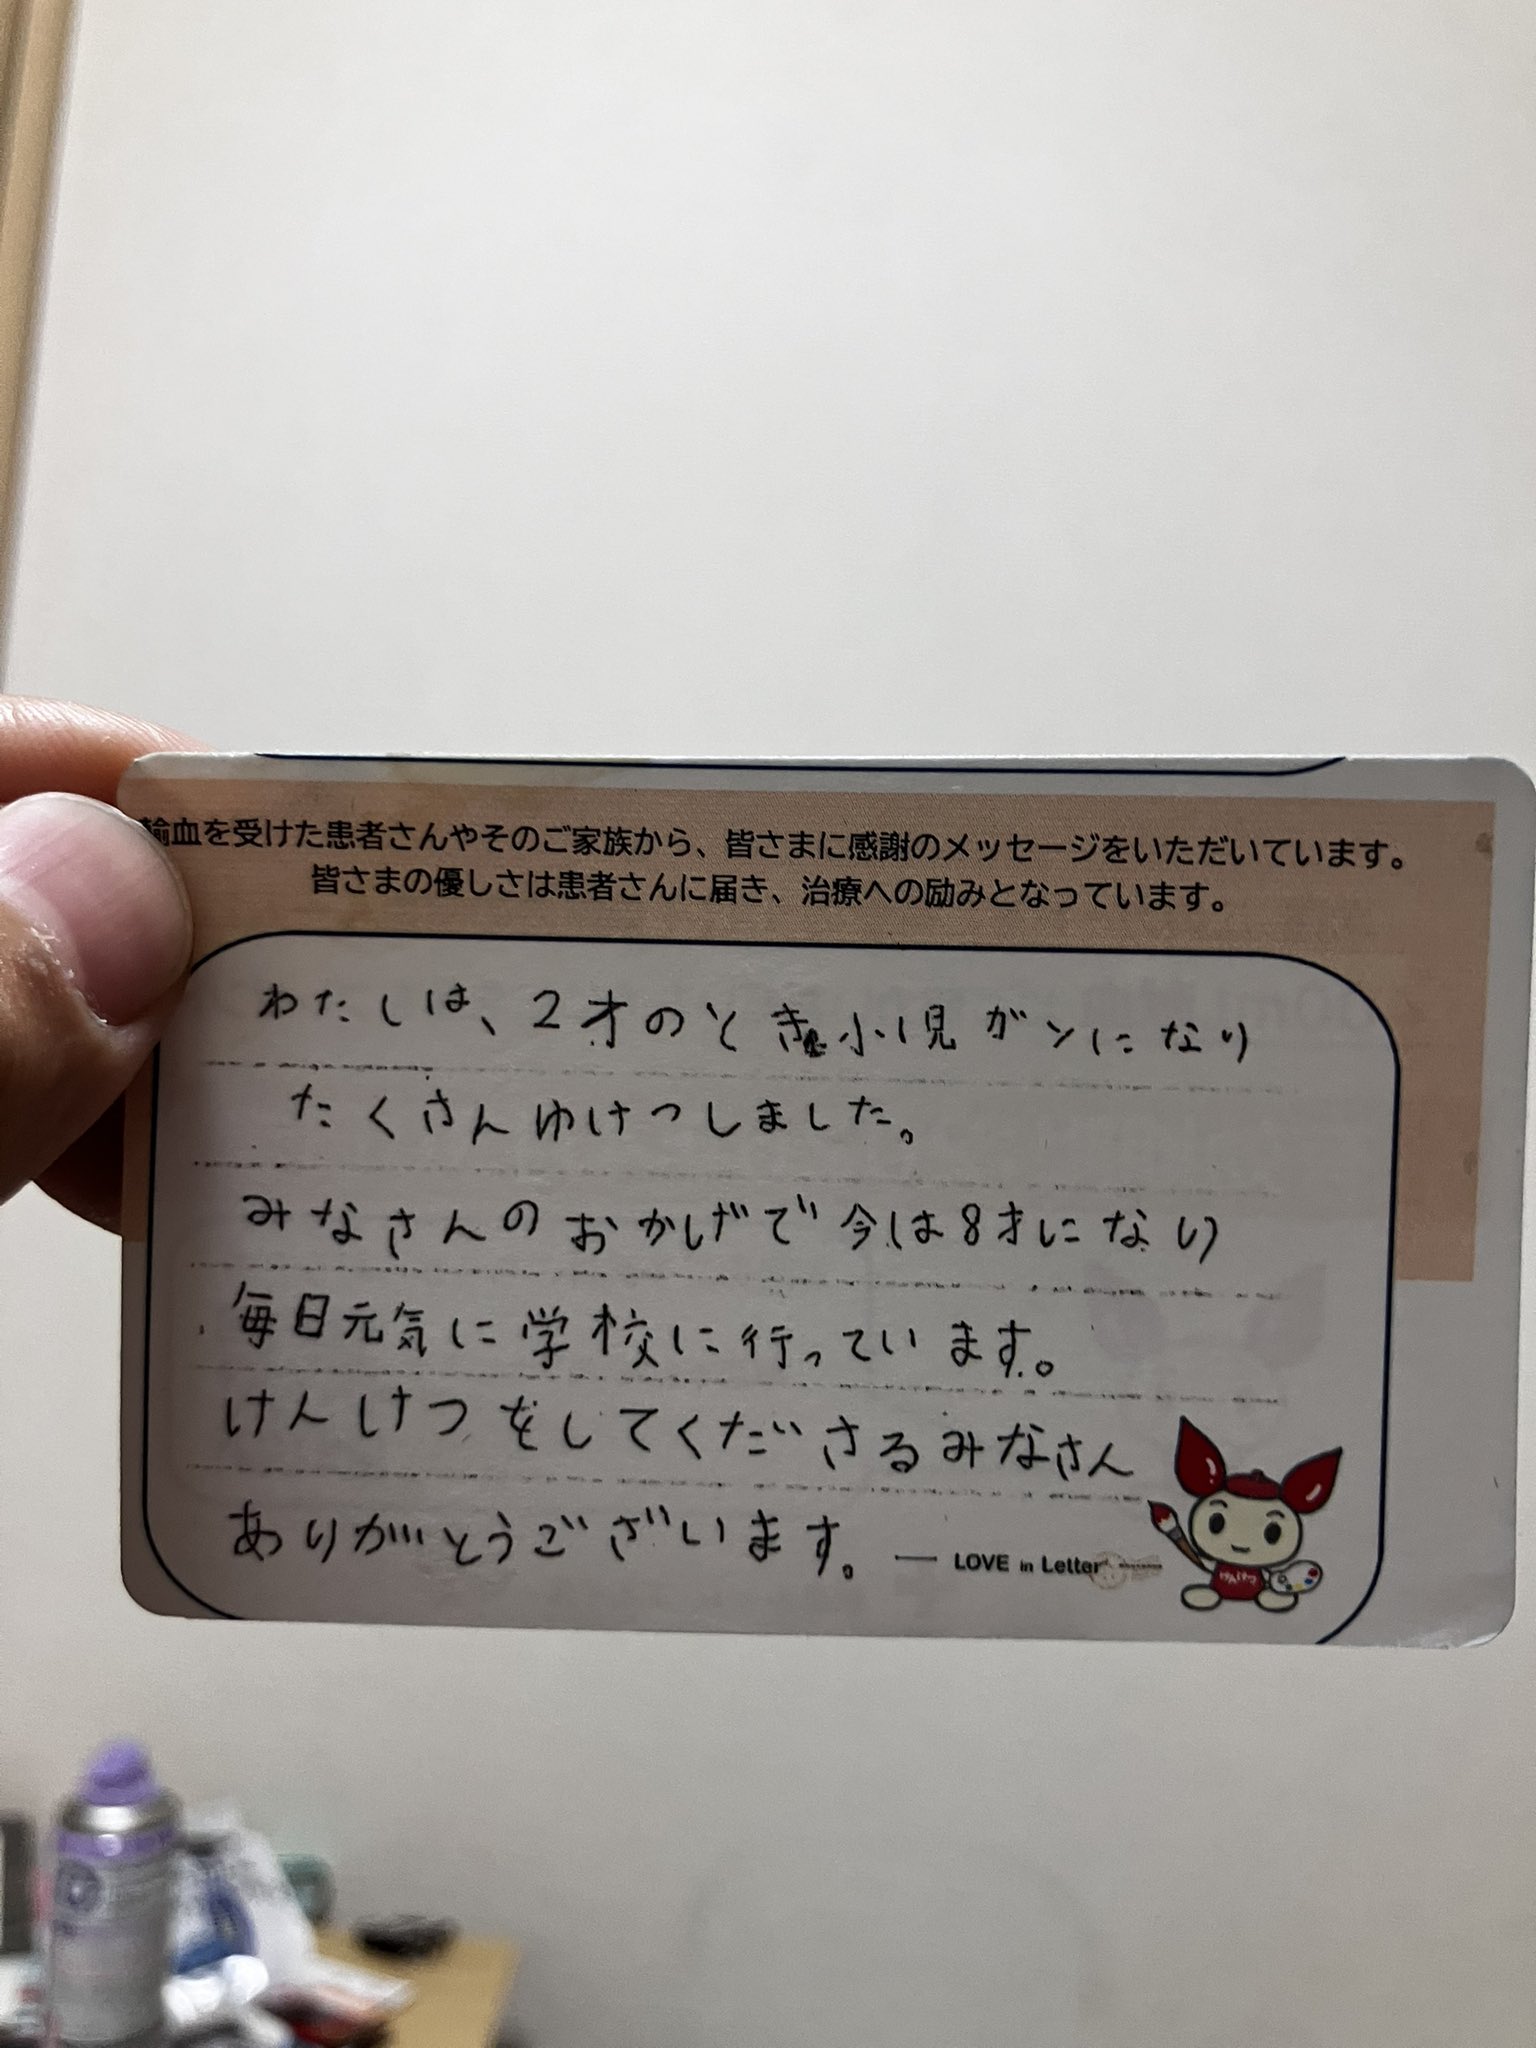 輸血を受けた患者さんやそのご家族から、皆さまに感謝のメッセージをいただいています。
皆さまの優しさは患者さんに届き、治療への励みとなっています。
わたしは、2才のとき小児ガンになり
たくさんゆけつしました。
みなさんのおかげで今は8才になり
毎日元気に学校に行っています。
けんけつをしてくださるみなさん
ありがとうございます。
LOVE in Letter
けんけつ